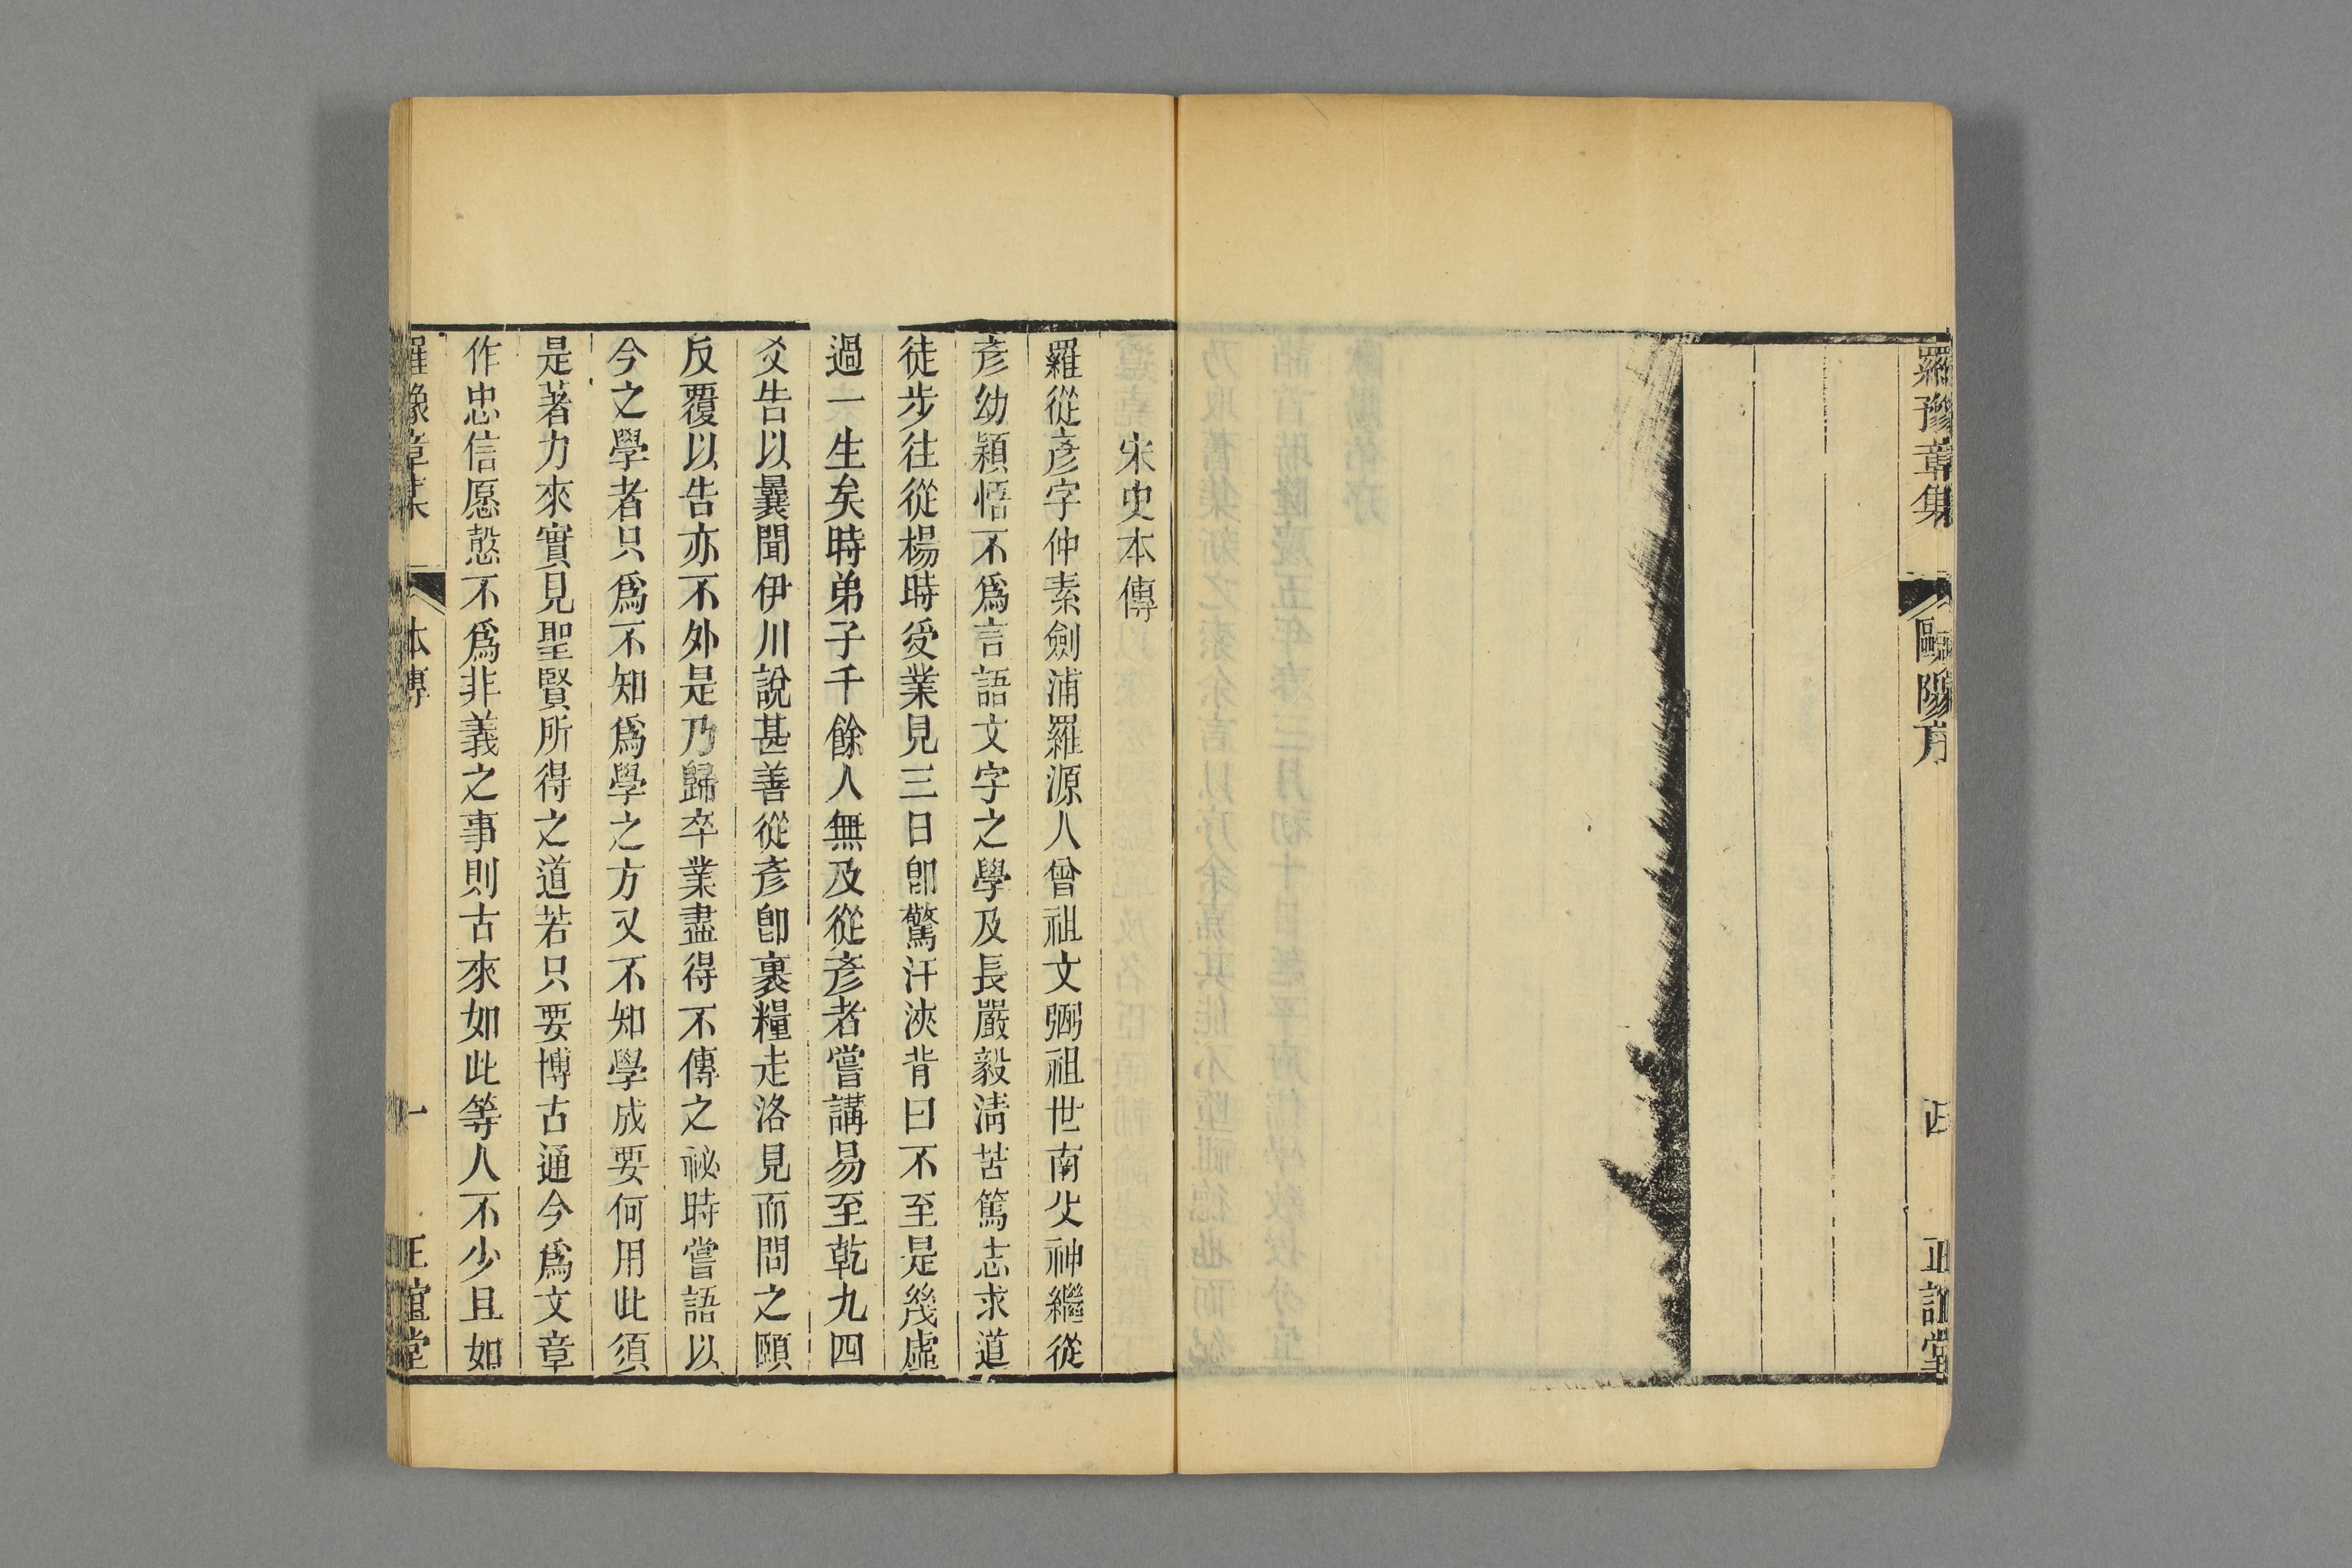 羅豫章集
歐陽序
正誼堂
宋史本傳
羅從彥字仲素劍浦羅源人曾祖文弼祖世南父神繼從
彥幼穎悟不爲言語文字之學及長嚴毅淸苦篤志求道
徒步往從楊時受業見三日卽驚汗浹背曰不至是幾虛
過一生矣時弟子千餘人無及從彥者嘗講易至乾九四
爻告以曩聞伊川說甚善從彥卽裹糧走洛見而問之頤
反覆以告亦不外是乃歸卒業盡得不傳之祕時嘗語以
今之學者只爲不知爲學之方又不知學成要何用此須
是著力來實見聖賢所得之道若只要博古通今爲文章
作忠信愿慤不爲非義之事則古來如此等人不少且如
羅豫章集
本傳
一
正誼堂